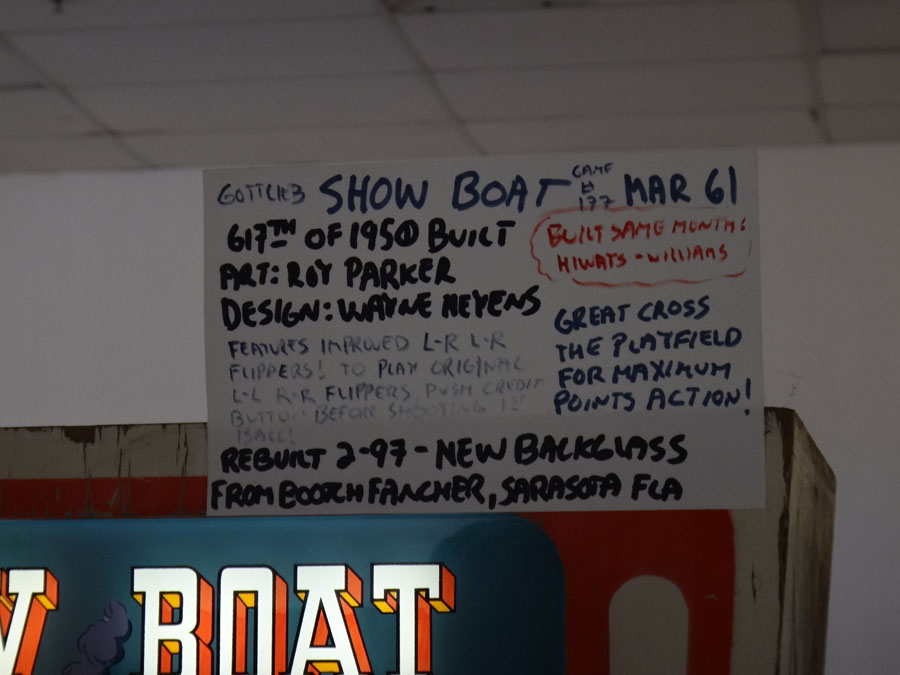 GOTTLIEB SHOW BOAT GAME # 177 MAR 61
617TH OF 1950 BUILT
BUILT SAME MONTH:
HIWAYS - WILLIAMS
ART: ROY PARKER
DESIGN: WAYNE NEYENS
FEATURES IMPROVED L-R L-R
FLIPPERS! TO PLAY ORIGINAL
L-L R-R FLIPPERS, PUSH CREDIT
BUTTON BEFORE SHOOTING 1ST
BALL!
GREAT CROSS
THE PLAYFIELD
FOR MAXIMUM
POINTS ACTION!
REBUILT 2-97 - NEW BACKGLASS
FROM BOOTH FANCHER, SARASOTA FLA
W BOAT